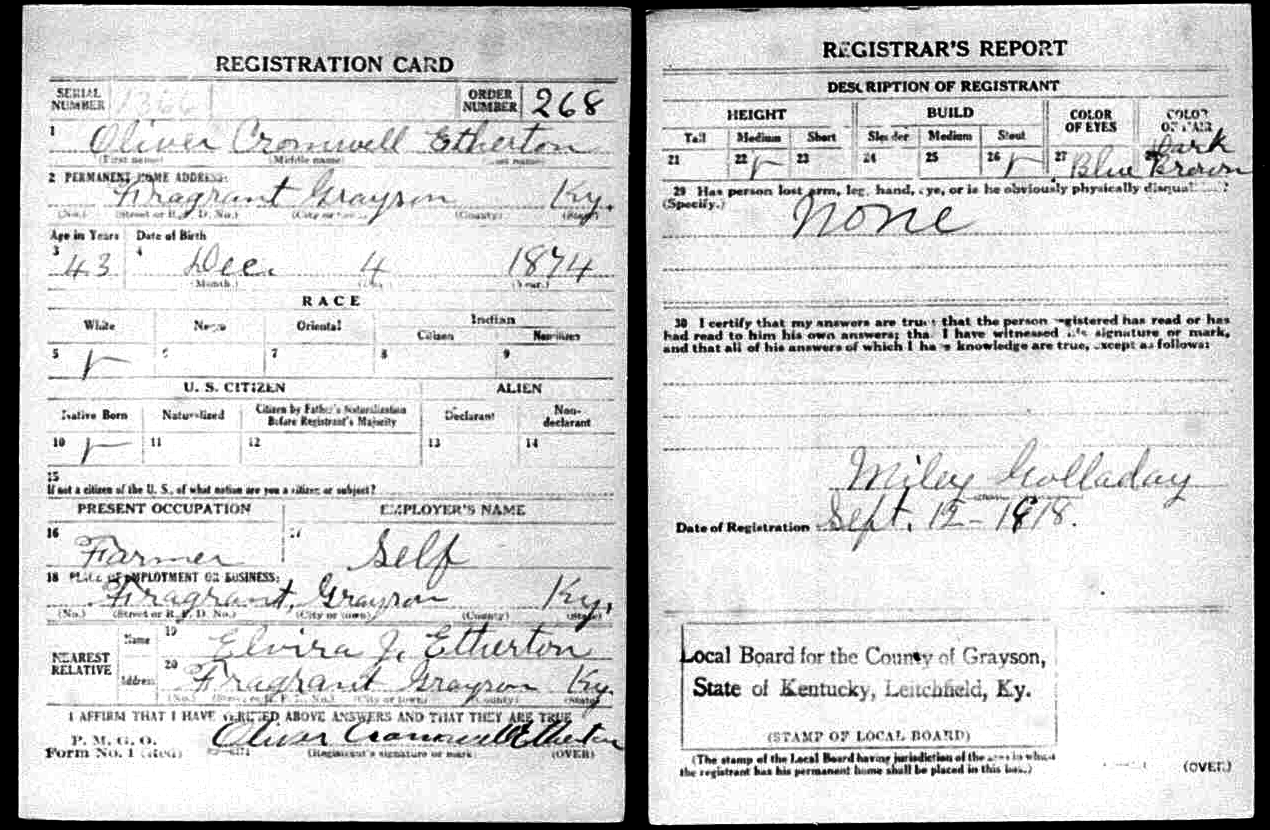 REGISTRATION CARD
SERIAL NUMBER 1366 ORDER NUMBER 268
1 Oliver Cromwell Etherton
(First name) (Middle name) (Last name)
2 PERMANENT HOME ADDRESS:
Fragrant Grayson Ky.
(No.) (Street or R. F. D. No.) (City or town) (County) (State)
Age in Years Date of Birth
3 43 4 Dec. 4 1874
(Month.) (Day.) (Year.)
RACE
White Negro Oriental Indian
Citizen Noncitizen
5 6 7 8 9
U. S. CITIZEN ALIEN
Native Born Naturalized Citizen by Father's Naturalization Before Registrant's Majority Declarant Non-declarant
10 11 12 13 14
15
If not a citizen of the U. S., of what nation are you a citizen or subject?
PRESENT OCCUPATION EMPLOYER'S NAME
16 Farmer 17 Self
18 PLACE OF EMPLOYMENT OR BUSINESS:
Fragrant, Grayson Ky.
(No.) (Street or R. F. D. No.) (City or town) (County) (State)
NEAREST RELATIVE Name 19 Elvira J. Etherton
Address 20 Fragrant Grayson Ky.
(No.) (Street or R. F. D. No.) (City or town) (County) (State)
I AFFIRM THAT I HAVE VERIFIED ABOVE ANSWERS AND THAT THEY ARE TRUE
P. M. G. O.
Form No. 1 (Red) Oliver Cromwell Etherton
(Registrant's signature or mark) (OVER)
REGISTRAR'S REPORT
DESCRIPTION OF REGISTRANT
HEIGHT BUILD COLOR OF EYES COLOR OF HAIR
Tall Medium Short Slender Medium Stout
21 22 23 24 25 26 27 Blue 28 Dark Brown
29 Has person lost arm, leg, hand, eye, or is he obviously physically disqualified?
(Specify.) None
30 I certify that my answers are true; that the person registered has read or has
had read to him his own answers; that I have witnessed his signature or mark,
and that all of his answers of which I have knowledge are true, except as follows:
Miley Holladay
Date of Registration Sept. 12 - 1918.
Local Board for the County of Grayson,
State of Kentucky, Leitchfield, Ky.
(STAMP OF LOCAL BOARD)
(The stamp of the Local Board having jurisdiction of the area in which
the registrant has his permanent home shall be placed in this box.)
(OVER)